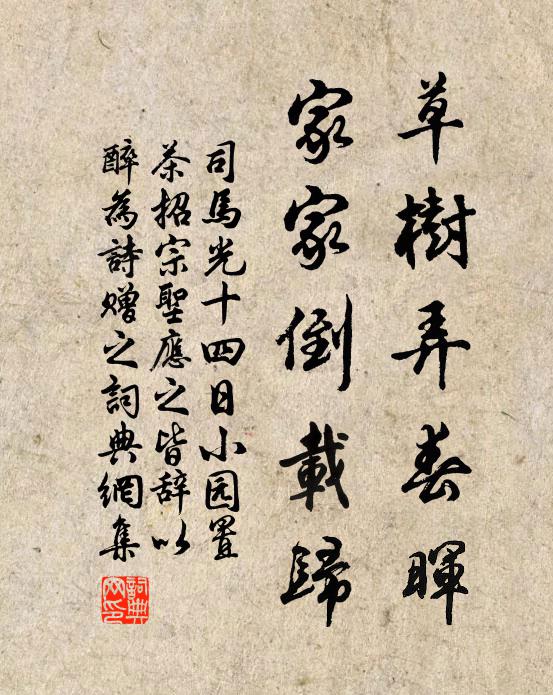 草樹弄春暉
家家倒載歸
司馬光十四日小园置
茶招宗聖應之皆辞以
醉為詩贈之詞典網集
詞典
网印